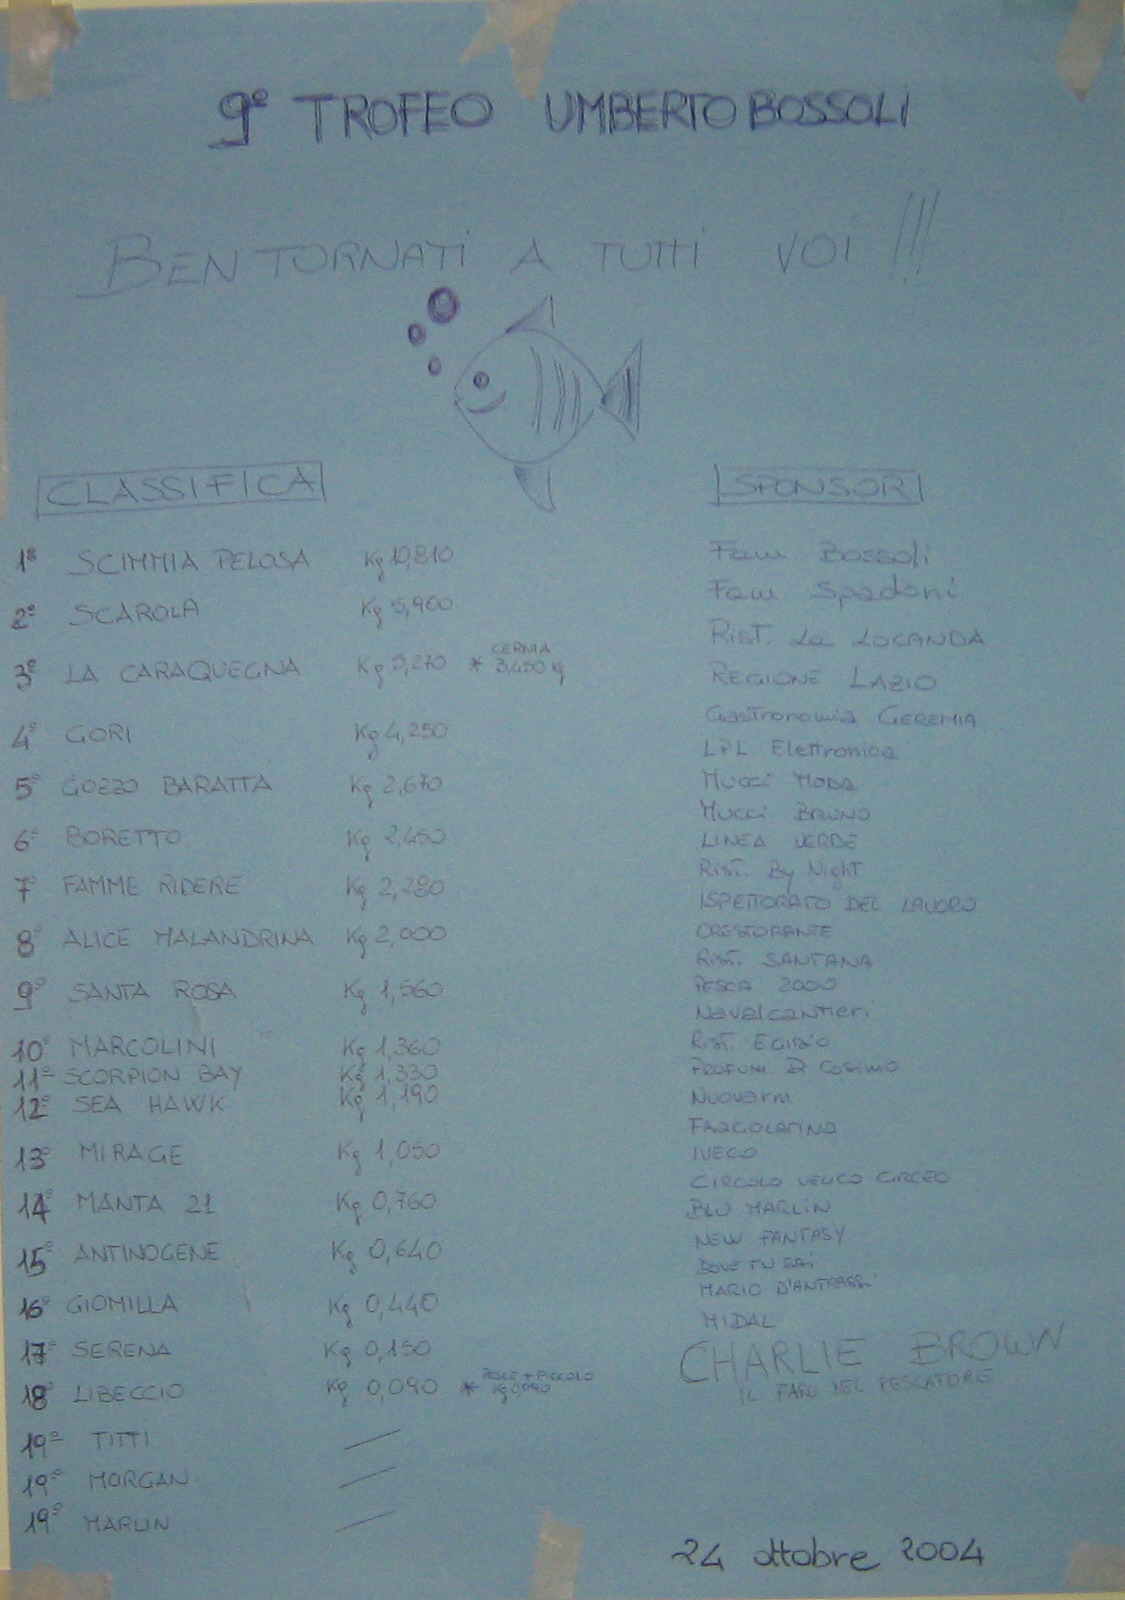 9° TROFEO UMBERTO BOSSOLI
BENTORNATI A TUTTI VOI !!!
CLASSIFICA
1° SCIMMIA PELOSA Kg 10,810
2° SCAROLA Kg 5,900
3° LA CARAQUEGNA Kg 5,270 * CERNIA 3,450 kg
4° GORI Kg 4,250
5° GOZZO BARATTA Kg 2,670
6° BORETTO Kg 2,450
7° FAMME RIDERE Kg 2,280
8° ALICE MALANDRINA Kg 2,000
9° SANTA ROSA Kg 1,560
10° MARCOLINI Kg 1,360
11° SCORPION BAY Kg 1,330
12° SEA HAWK Kg 1,190
13° MIRAGE Kg 1,050
14° MANTA 21 Kg 0,760
15° ANTINOGENE Kg 0,640
16° GIOMILLA Kg 0,440
17° SERENA Kg 0,150
18° LIBECCIO Kg 0,090 * PESCE + PICCOLO Kg 0,090
19° TITTI —
19° MORGAN —
19° MARLIN —
SPONSOR
Fam. Bossoli
Fam Spadoni
Rist. La LOCANDA
REGIONE LAZIO
Gastronomia GEREMIA
LPL Elettronica
Mucci MODA
Mucci BRUNO
LINEA VERDE
Rist. By Night
ISPETTORATO DEL LAVORO
ORESTORANTE
Rist. SANTANA
PESCA 2000
Navalcantieri
Rist. EGIZIO
PROFUMI Di Cosimo
Nuovarm
FRAGOLATINA
IVECO
CIRCOLO VELICO CIRCEO
BLU MARLIN
NEW FANTASY
DOVE TU SAI
MARIO
MIDAL
CHARLIE BROWN
IL FARO DEL PESCATORE
24 ottobre 2004